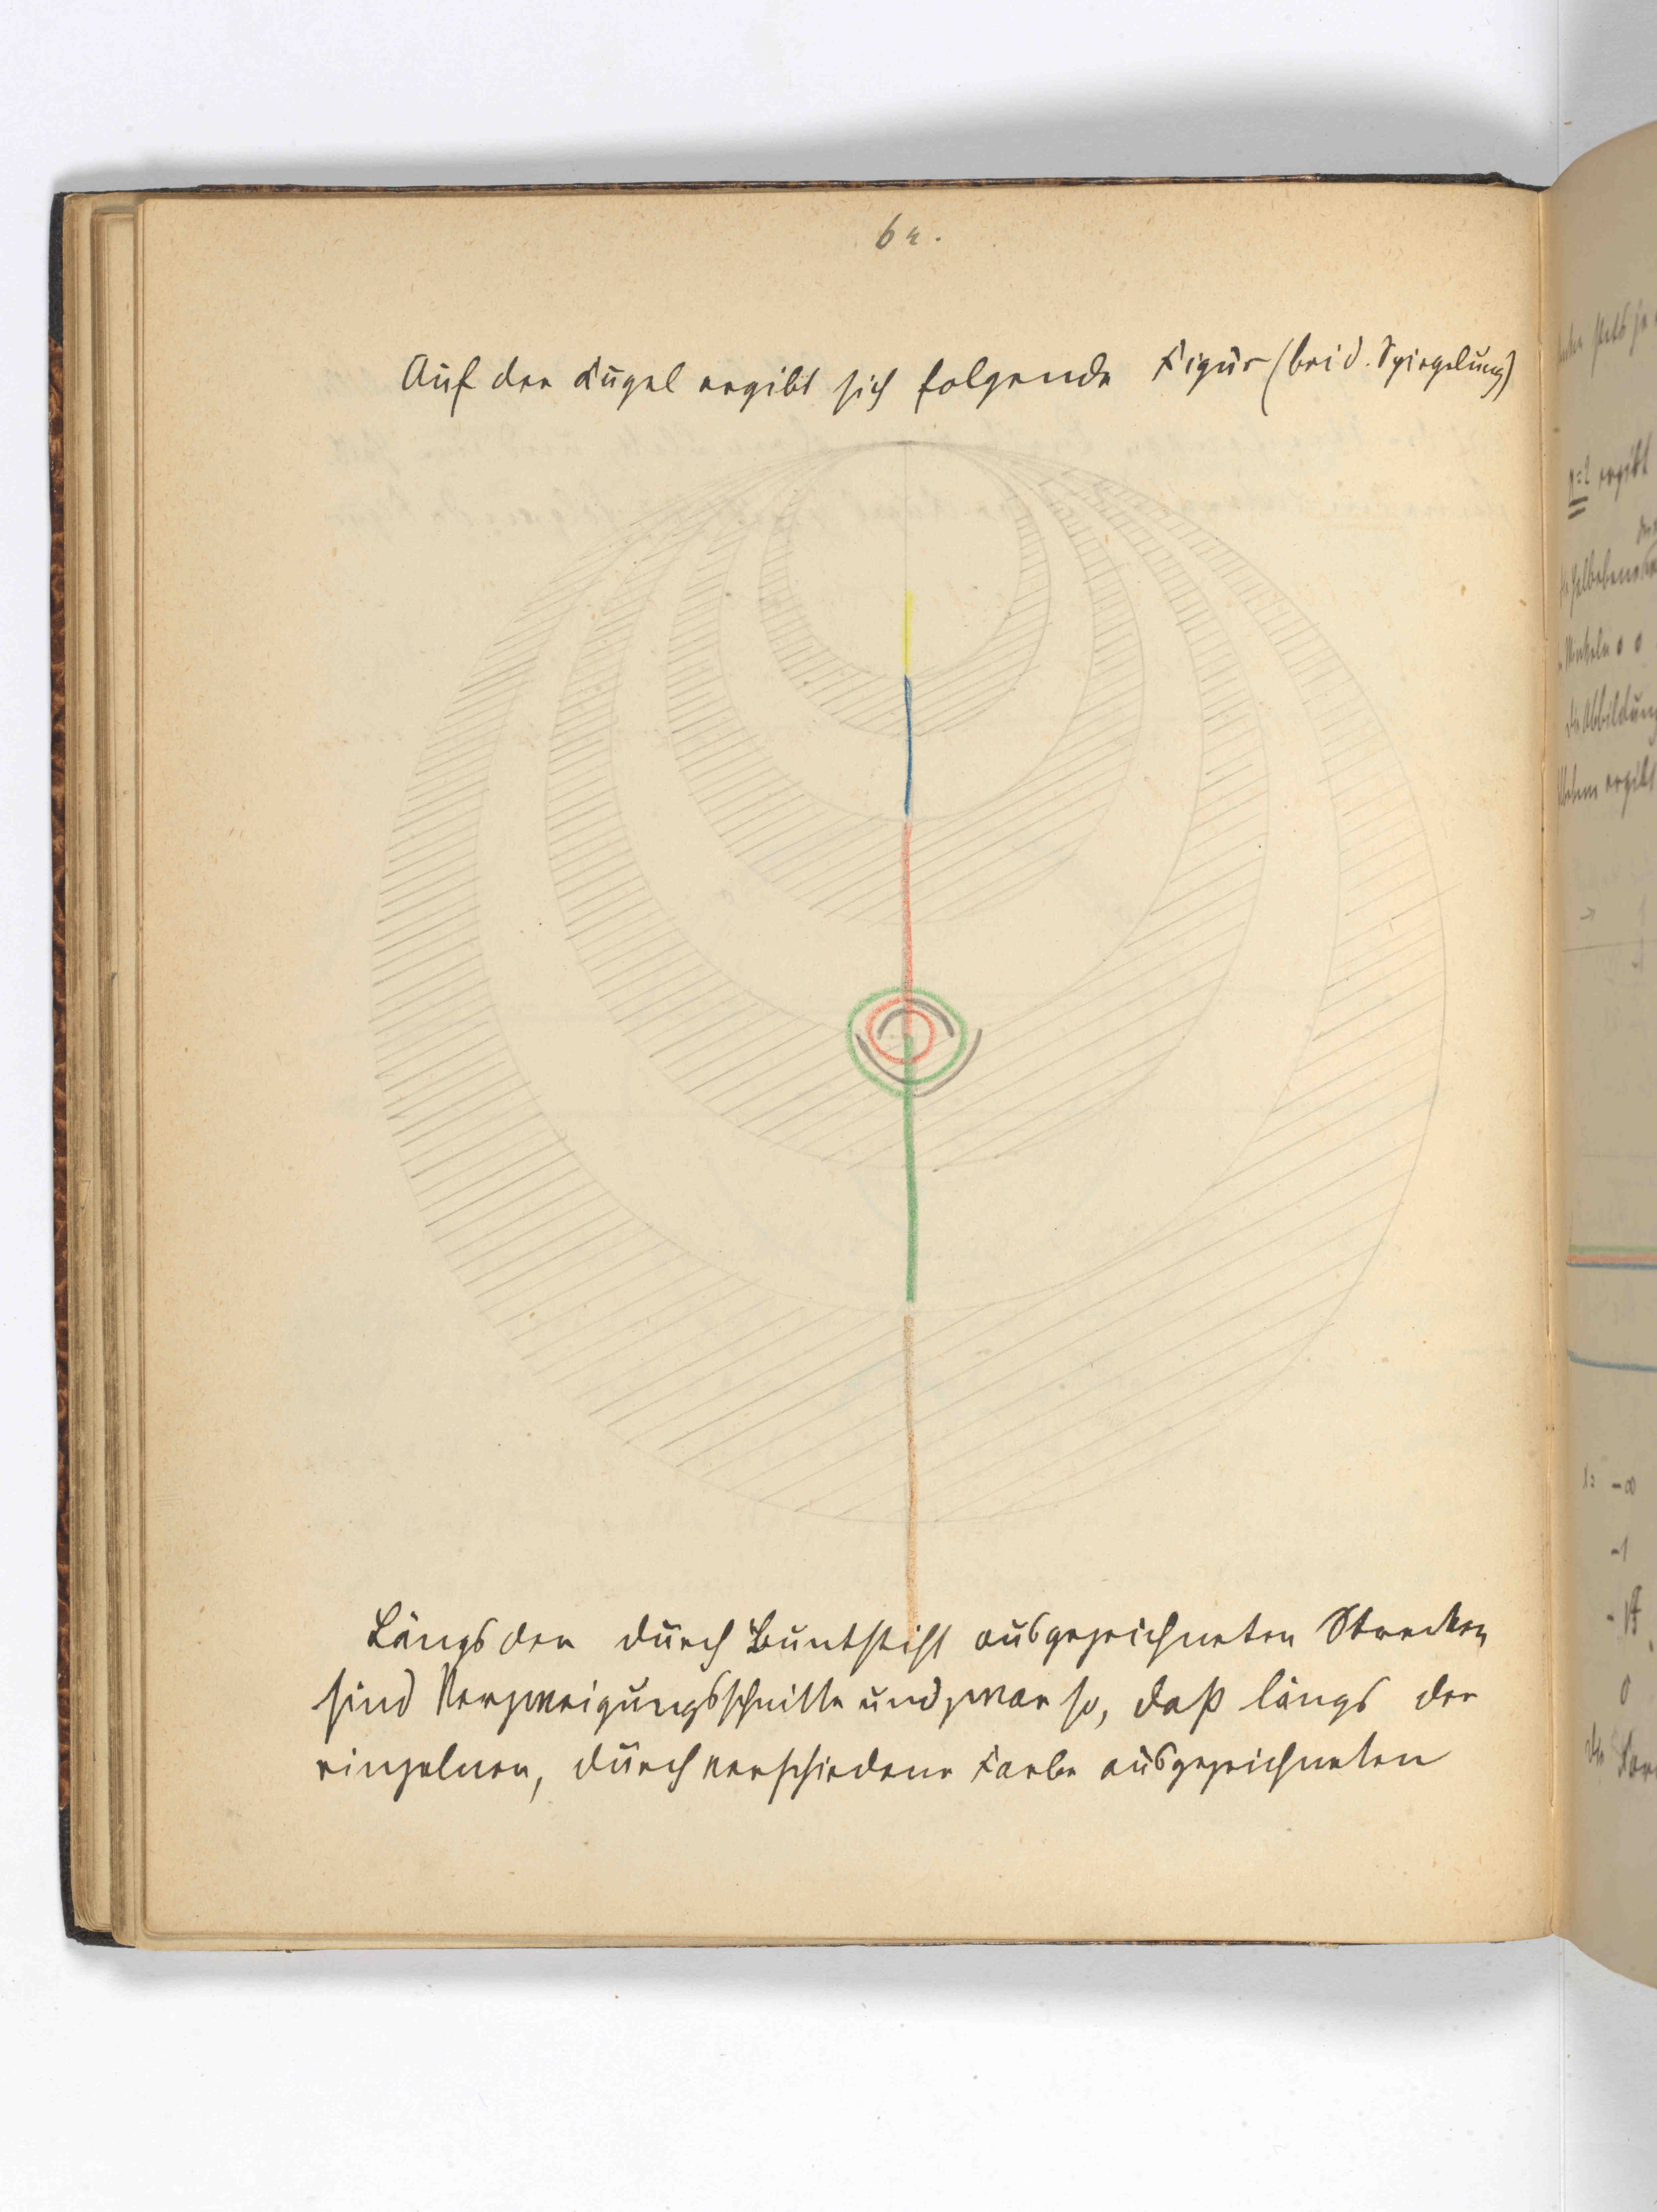 64.
Auf der Kugel ergibt sich folgende Figur (bei d. Spiegelung)
Längs der durch Buntstift ausgezeichneten Strecken
sind Verzweigungsschnitte und zwar so, daß längs der
einzelnen, durch verschiedene Farbe ausgezeichneten
ergibt
die Abbildung
ergibt
x= -∞
-1
0